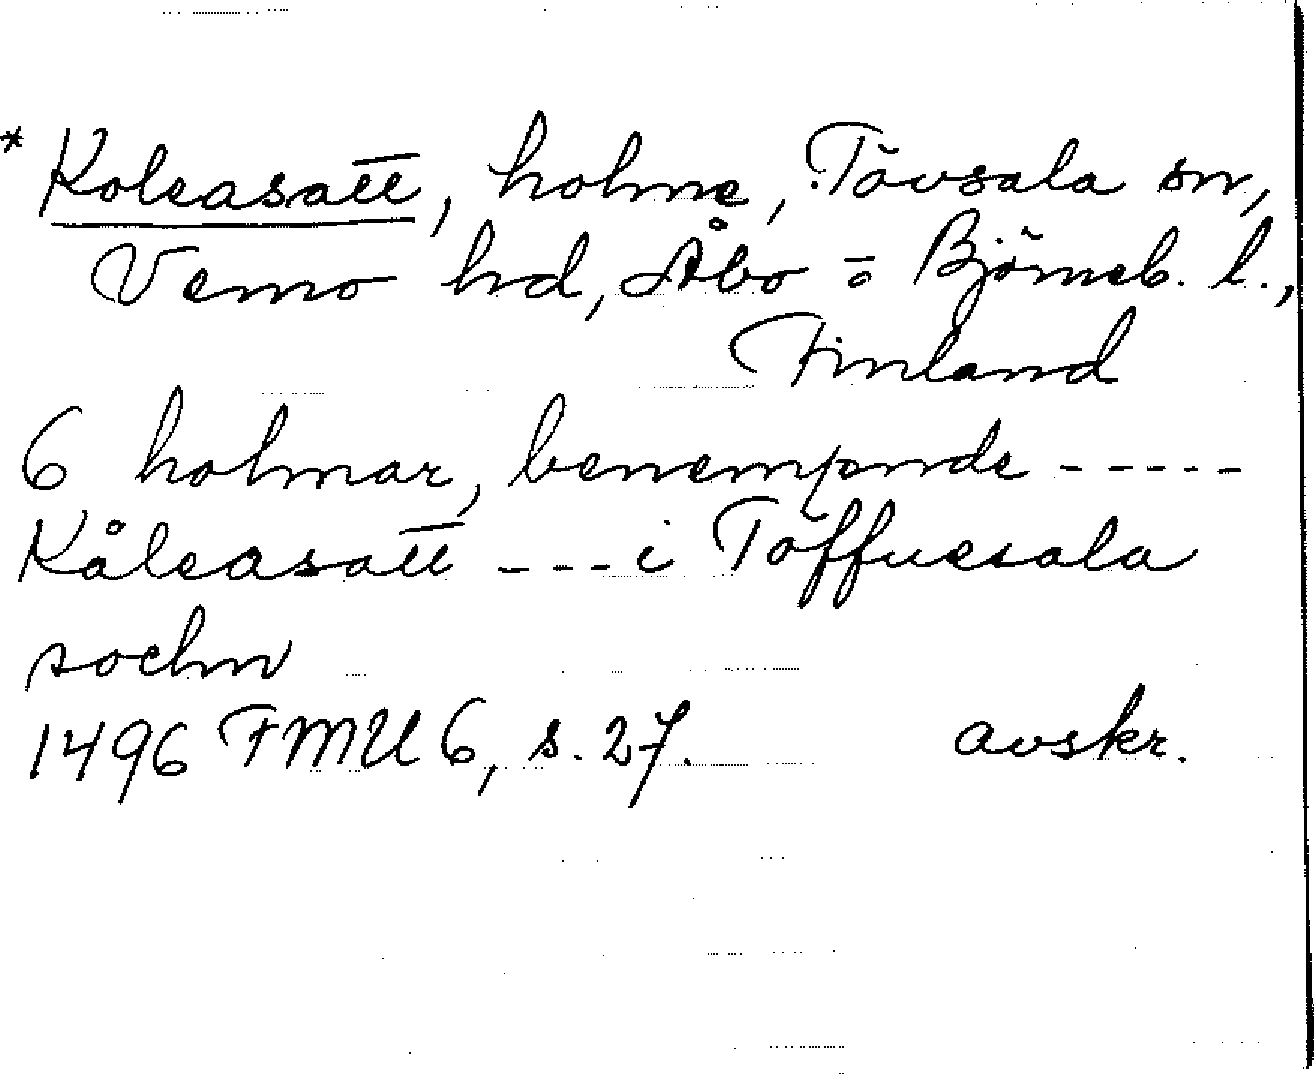 * Koleasatt, holme, Tövsala sn,
Vemo hd, Åbo o Björneb. l.,
Finland
6 holmar, benempnde -----
Kåleasatt --- i Töffuesala
sochn
1496 FMU 6, s. 27. avskr.